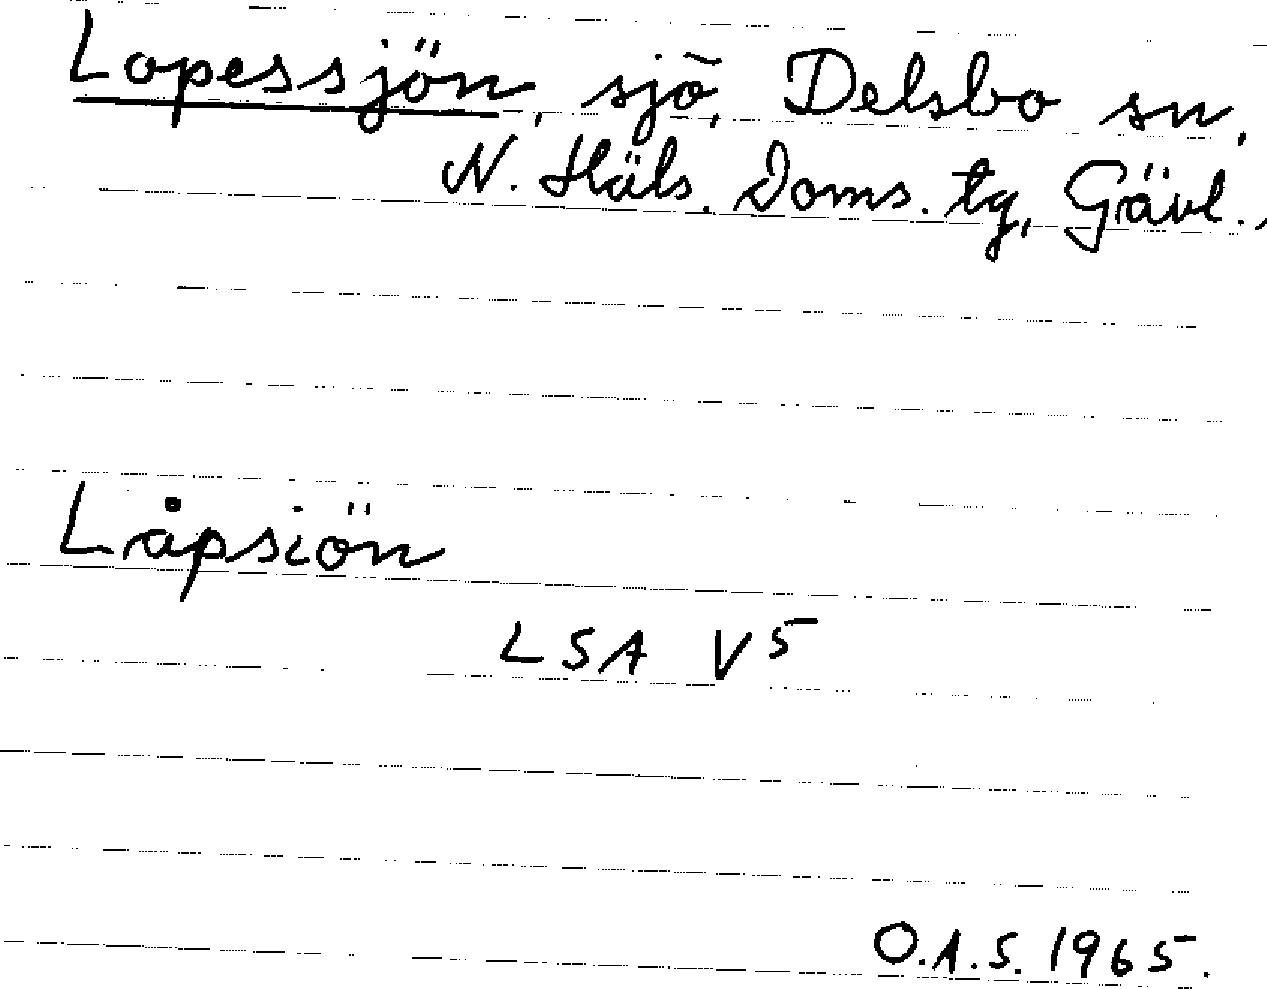 Lopessjön, sjö, Delsbo sn,
N. Häls. Doms. tg, Gävl.,
Låpsiön
LSA V5
O.A.S. 1965.